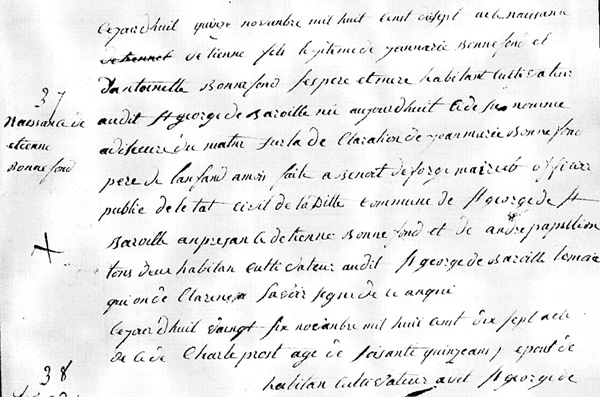 Cejourdhuil quinze novanbre mil huit cent disept acte naissance
de tienne fils legitime de jeanmarie Bonnefond et
dantoinette Bonnefond ses pere et mere habitan cultivateur
audit St george de Baroille née aujourdhuit
a dis heure du matin sur la de Claration de jean marie Bonnefond
37
Naissance de
etienne
Bonnefond
pere de lanfand a moi faite a Benoit deforge maire et officier
public de le tat Civil de la Ditte Commune de St george de
Baroille an presan ce de tienne Bonnefond et de andre papillion
tous deux habitan cultivateur audit St george de Baroille
qui on de Clarene savoir segnié de ce anqui
Cejourdhuil vaingt six novanbre mil huit cent dix sept acte
de cé de Charle prost age de soisante quinze ans epout de
38
habitan cultivateur audit St george de